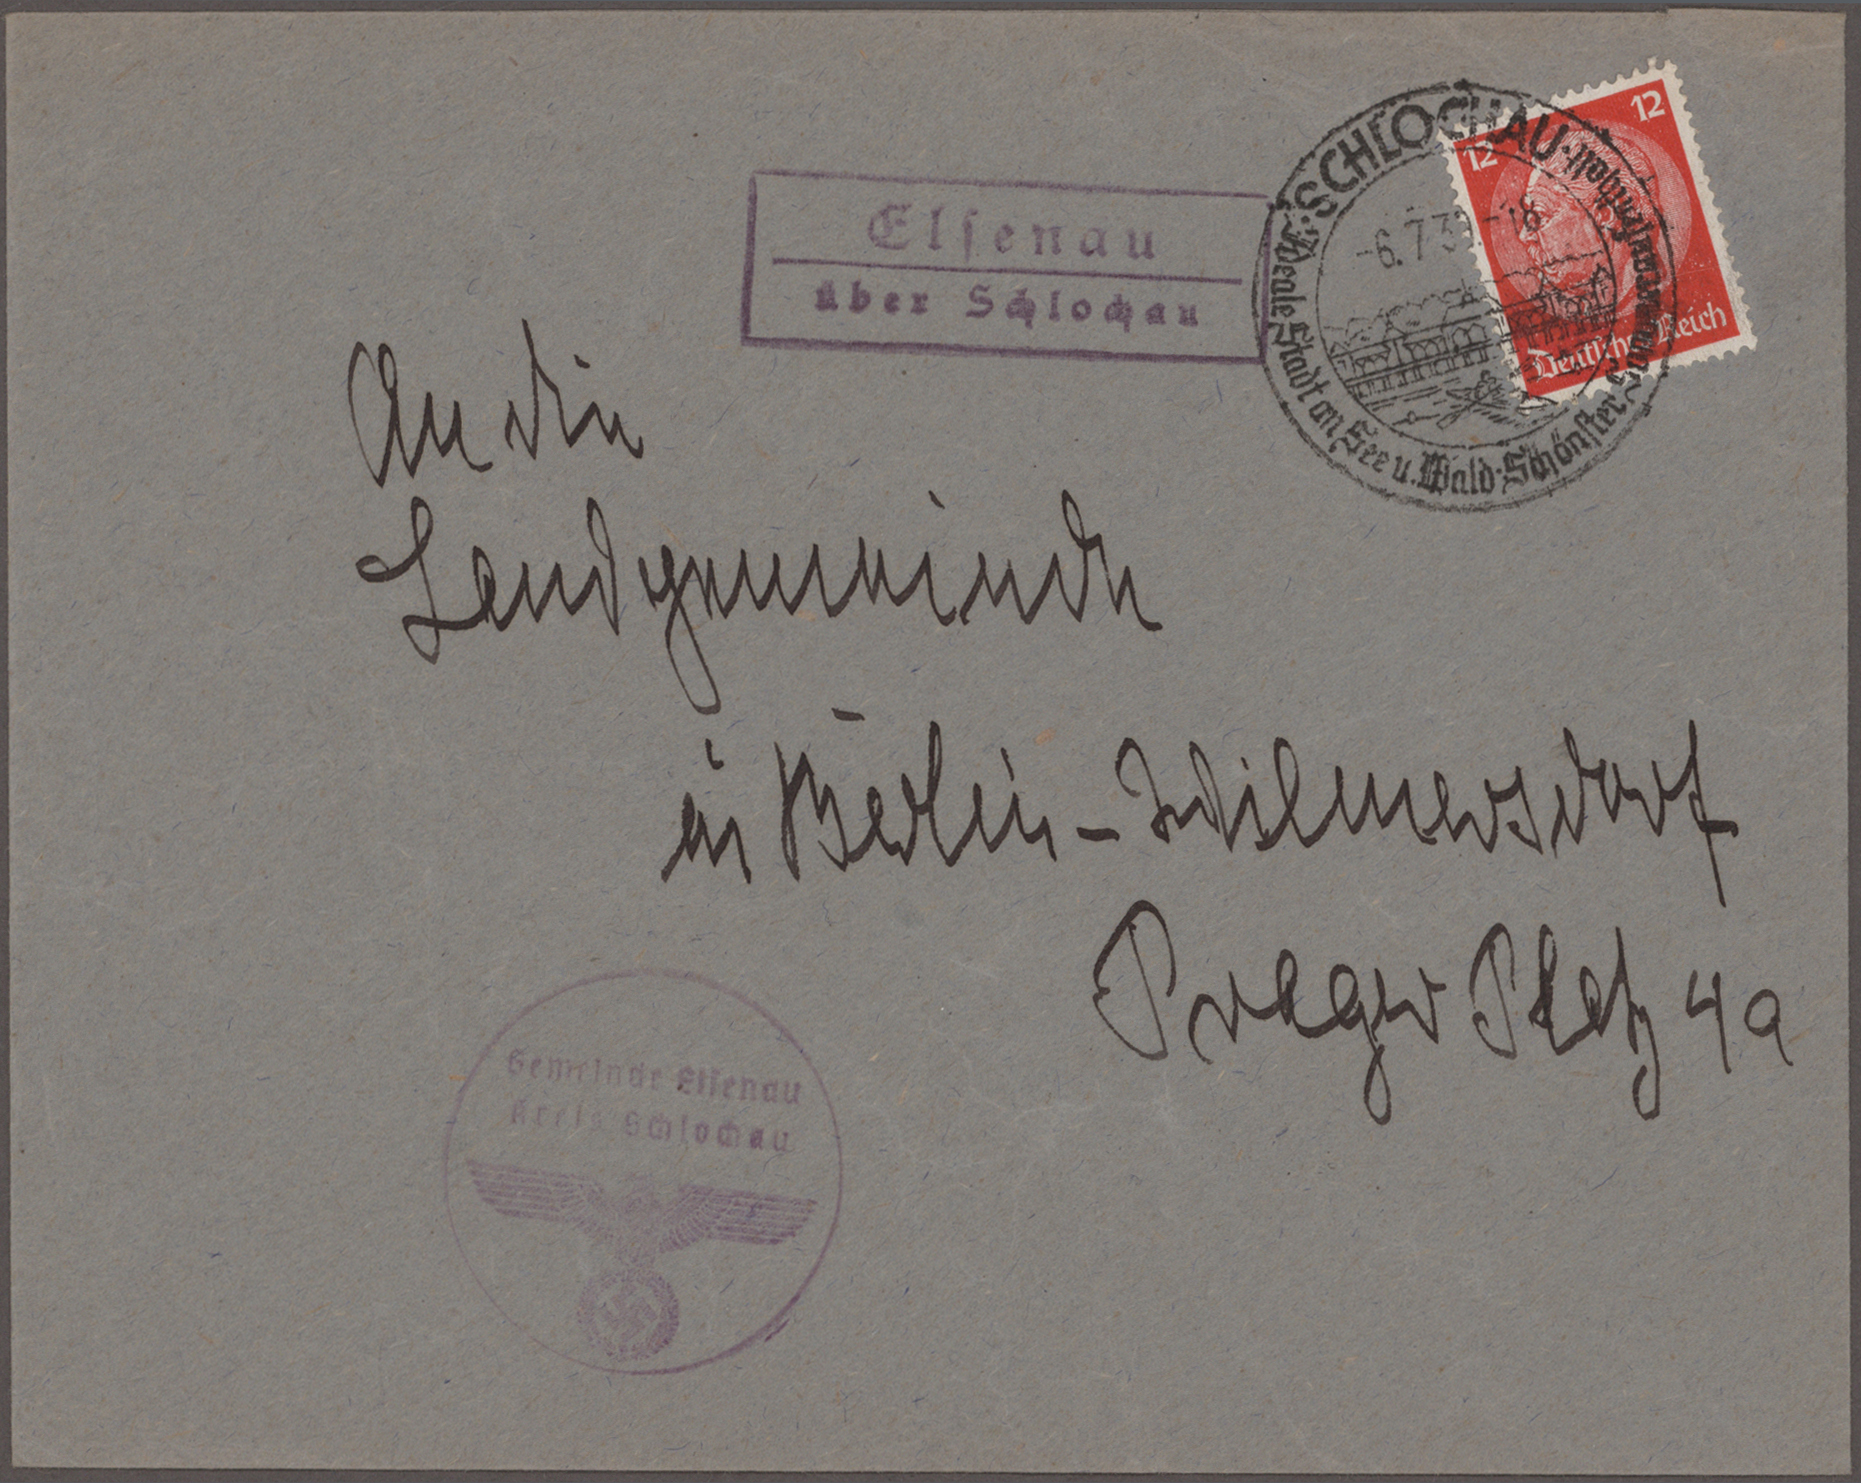 Elsenau
über Schlochau
SCHLOCHAU
-6.7.3 -18
Ideale Stadt am See u. Wald · Schönster
12
12
Deutsches Reich
An die
Landgemeinde
in Berlin-Wilmersdorf
Prager Platz 4a
Gemeinde Elsenau
Kreis Schlochau